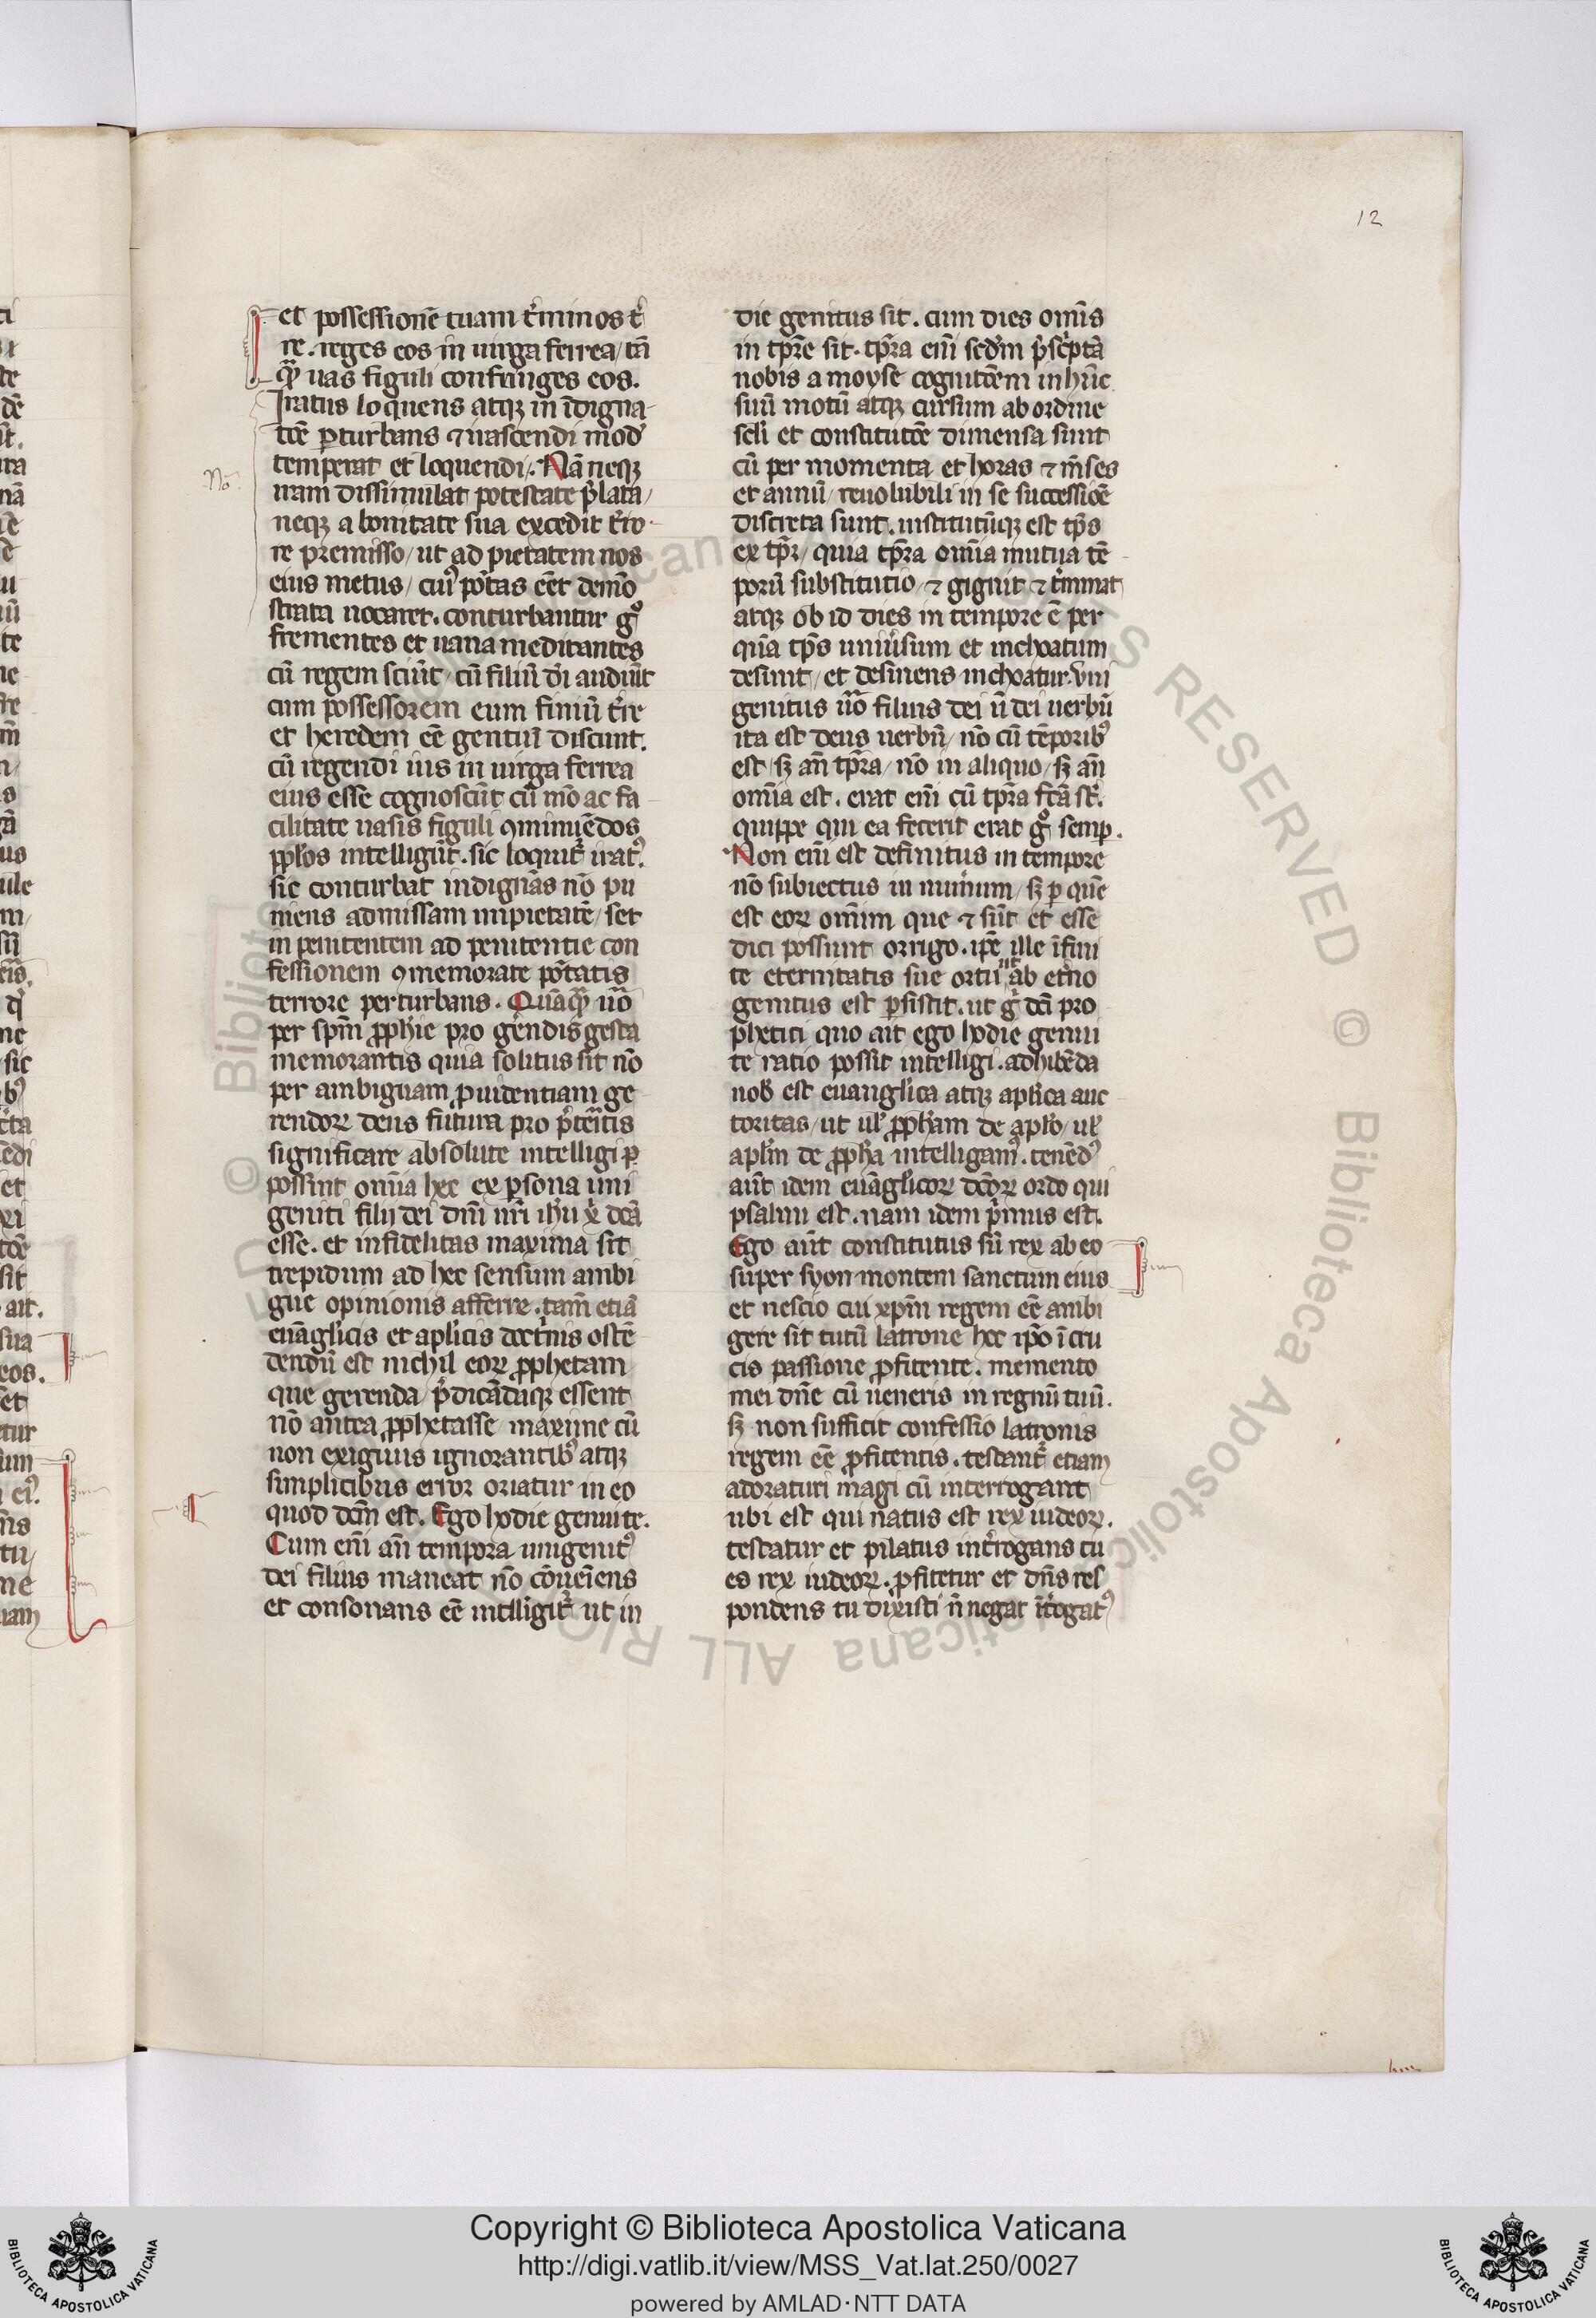 12
et possessionē tuam t̄minos t̄
re. reges eos in uirga ferrea/ tā
qͣ̄ uas figuli confringes eos.
Iratus loquens atqꝫ in īdigna-
tōe ꝑturbans ⁊ irascendi mod᷒
temperat et loquendi. Nā neqꝫ
No.
iram dissimulat potestate p̄lata/
neqꝫ a bonitate sua excedit t̄ro-
re premisso/ ut ad pietatem nos
eius metus/ cuiꝰ ptās eēt demō
strata uocaret. conturbantur gͦ
frementes et uana meditantes
cū regem sciūt/ cū filiū dī audiūt
cum possessorem eum finiū t̄re
et heredem eē gentiū discunt.
cū regendi ius in uirga ferrea
eius esse cognoscūt cū mō ac fa
cilitate uasis figuli ꝯminuēdos
ppl̄os intelligūt. sic loquit᷑ iratꝰ.
sic conturbat indignās nō pu
niens admissam impietatē/ set
in penitentem ad penitentie con
fessionem ꝯmemorate ptātis
terrore perturbans. Quāqͣ̄ uͦ̄
per spm̄ ꝓph̄ie pro gerendis gesta
memorantis quia solitus sit nō
per ambiguam ꝓuidentiam ge
rendoꝝ deus futura pro p̄teritis
significare absolute intelligi ꝑ
possint omīa hec ex ꝑsona uni
geniti filij dei dn̄i nr̄i ih̄u x̄ dc̄ā
esse. et infidelitas maxima sit
trepidum ad hec sensum ambi
gue opinionis afferre. tam̄ etiā
euāgl̄icis et apl̄icis doct̄nis ostē
dendū est nichil eoꝝ ꝓphetam
que gerenda p̄dicādaqꝫ essent
nō antea ꝓphetasse/ maxime cū
non exiguus ignorantibꝰ atqꝫ
simplicibus error oriatur in eo
quod dc̄m est. Ego hodie genui te.
Cum eni᷒ an̄ tempora unigenitꝰ
dei filius maneat nō cōueniens
et consonans eē intlligit᷑ ut in
die genitus sit. cum dies omīs
in tpr̄e sit. tpr̄a eni᷒ sedm̄ p̄scptā
nobis a moyse cognitōem in hūc
suū motū atqꝫ cursum ab ordine
scl̄i et constitutōe dimensa sunt
cū per momenta et horas ⁊ m̄ses
et annū/ reuolubili in se successiōe
discreta sunt. institutūqꝫ est tp̄s
ex tpr̄/ quia tpr̄a omīa mutua tē
porū substitutio/ ⁊ gignit ⁊ t̄minat
atqꝫ ob id dies in tempore ē per
quā tp̄s uniūsum et inchoatum
desinit/ et desinens inchoatur. vni
genitus uͦ̄ filius dei ū dei uerbū
ita est deus uerbū/ nō cū tēporibꝰ
est/ sꝫ an̄ tpr̄a/ nō in aliquo/ sꝫ an̄
omīa est. erat eni᷒ cū tpr̄a fc̄ā st̄.
quippe qui ea fecerit erat gͦ semꝑ.
Non eni᷒ est definitus in tempore
nō subiectus in numerum/ sꝫ ꝑ quē
est eoꝝ omīum que ⁊ sūt et esse
dici possunt origo. ip̄e ille īfini
te eternitatis sue ortū ut ab et̄no
genitus est ꝑsistit. ut gͦ dc̄i pro
phetici quo ait ego hodie genui
te ratio possit intelligi. adhibēda
nob᷒ est euangl̄ica atqꝫ apl̄ica auc
toritas/ ut ul̄ ꝓph̄am de apl̄o/ ul̄
apl̄m de ꝓph̄a intelligamꝰ. tenēdꝰ
aūt idem euāgl̄icoꝝ dc̄oꝝ ordo qui
psalmi est. nam idem p̄mus est.
Ego aūt constitutus sū rex ab eo
super syon montem sanctum eius
et nescio cui xpm̄ regem eē ambi
gere sit tutū latrone hec ip̄o ī cru
cis passione ꝓfitente. memento
mei dn̄e cū ueneris in regnū tuū.
sꝫ non sufficit confessio latronis
regem eē ꝓfitentis. testant᷑ etiam
adoraturi magi cū interrogant
ubi est qui natus est rex iudeoꝝ.
testatur et pilatus int̄rogans tu
es rex iudeoꝝ. ꝓfitetur et dn̄s res
pondens tu dixisti n̄ negat īt̄rogatꝰ
Copyright © Biblioteca Apostolica Vaticana
http://digi.vatlib.it/view/MSS_Vat.lat.250/0027
powered by AMLAD·NTT DATA
BIBLIOTECA APOSTOLICA VATICANA
BIBLIOTECA APOSTOLICA VATICANA